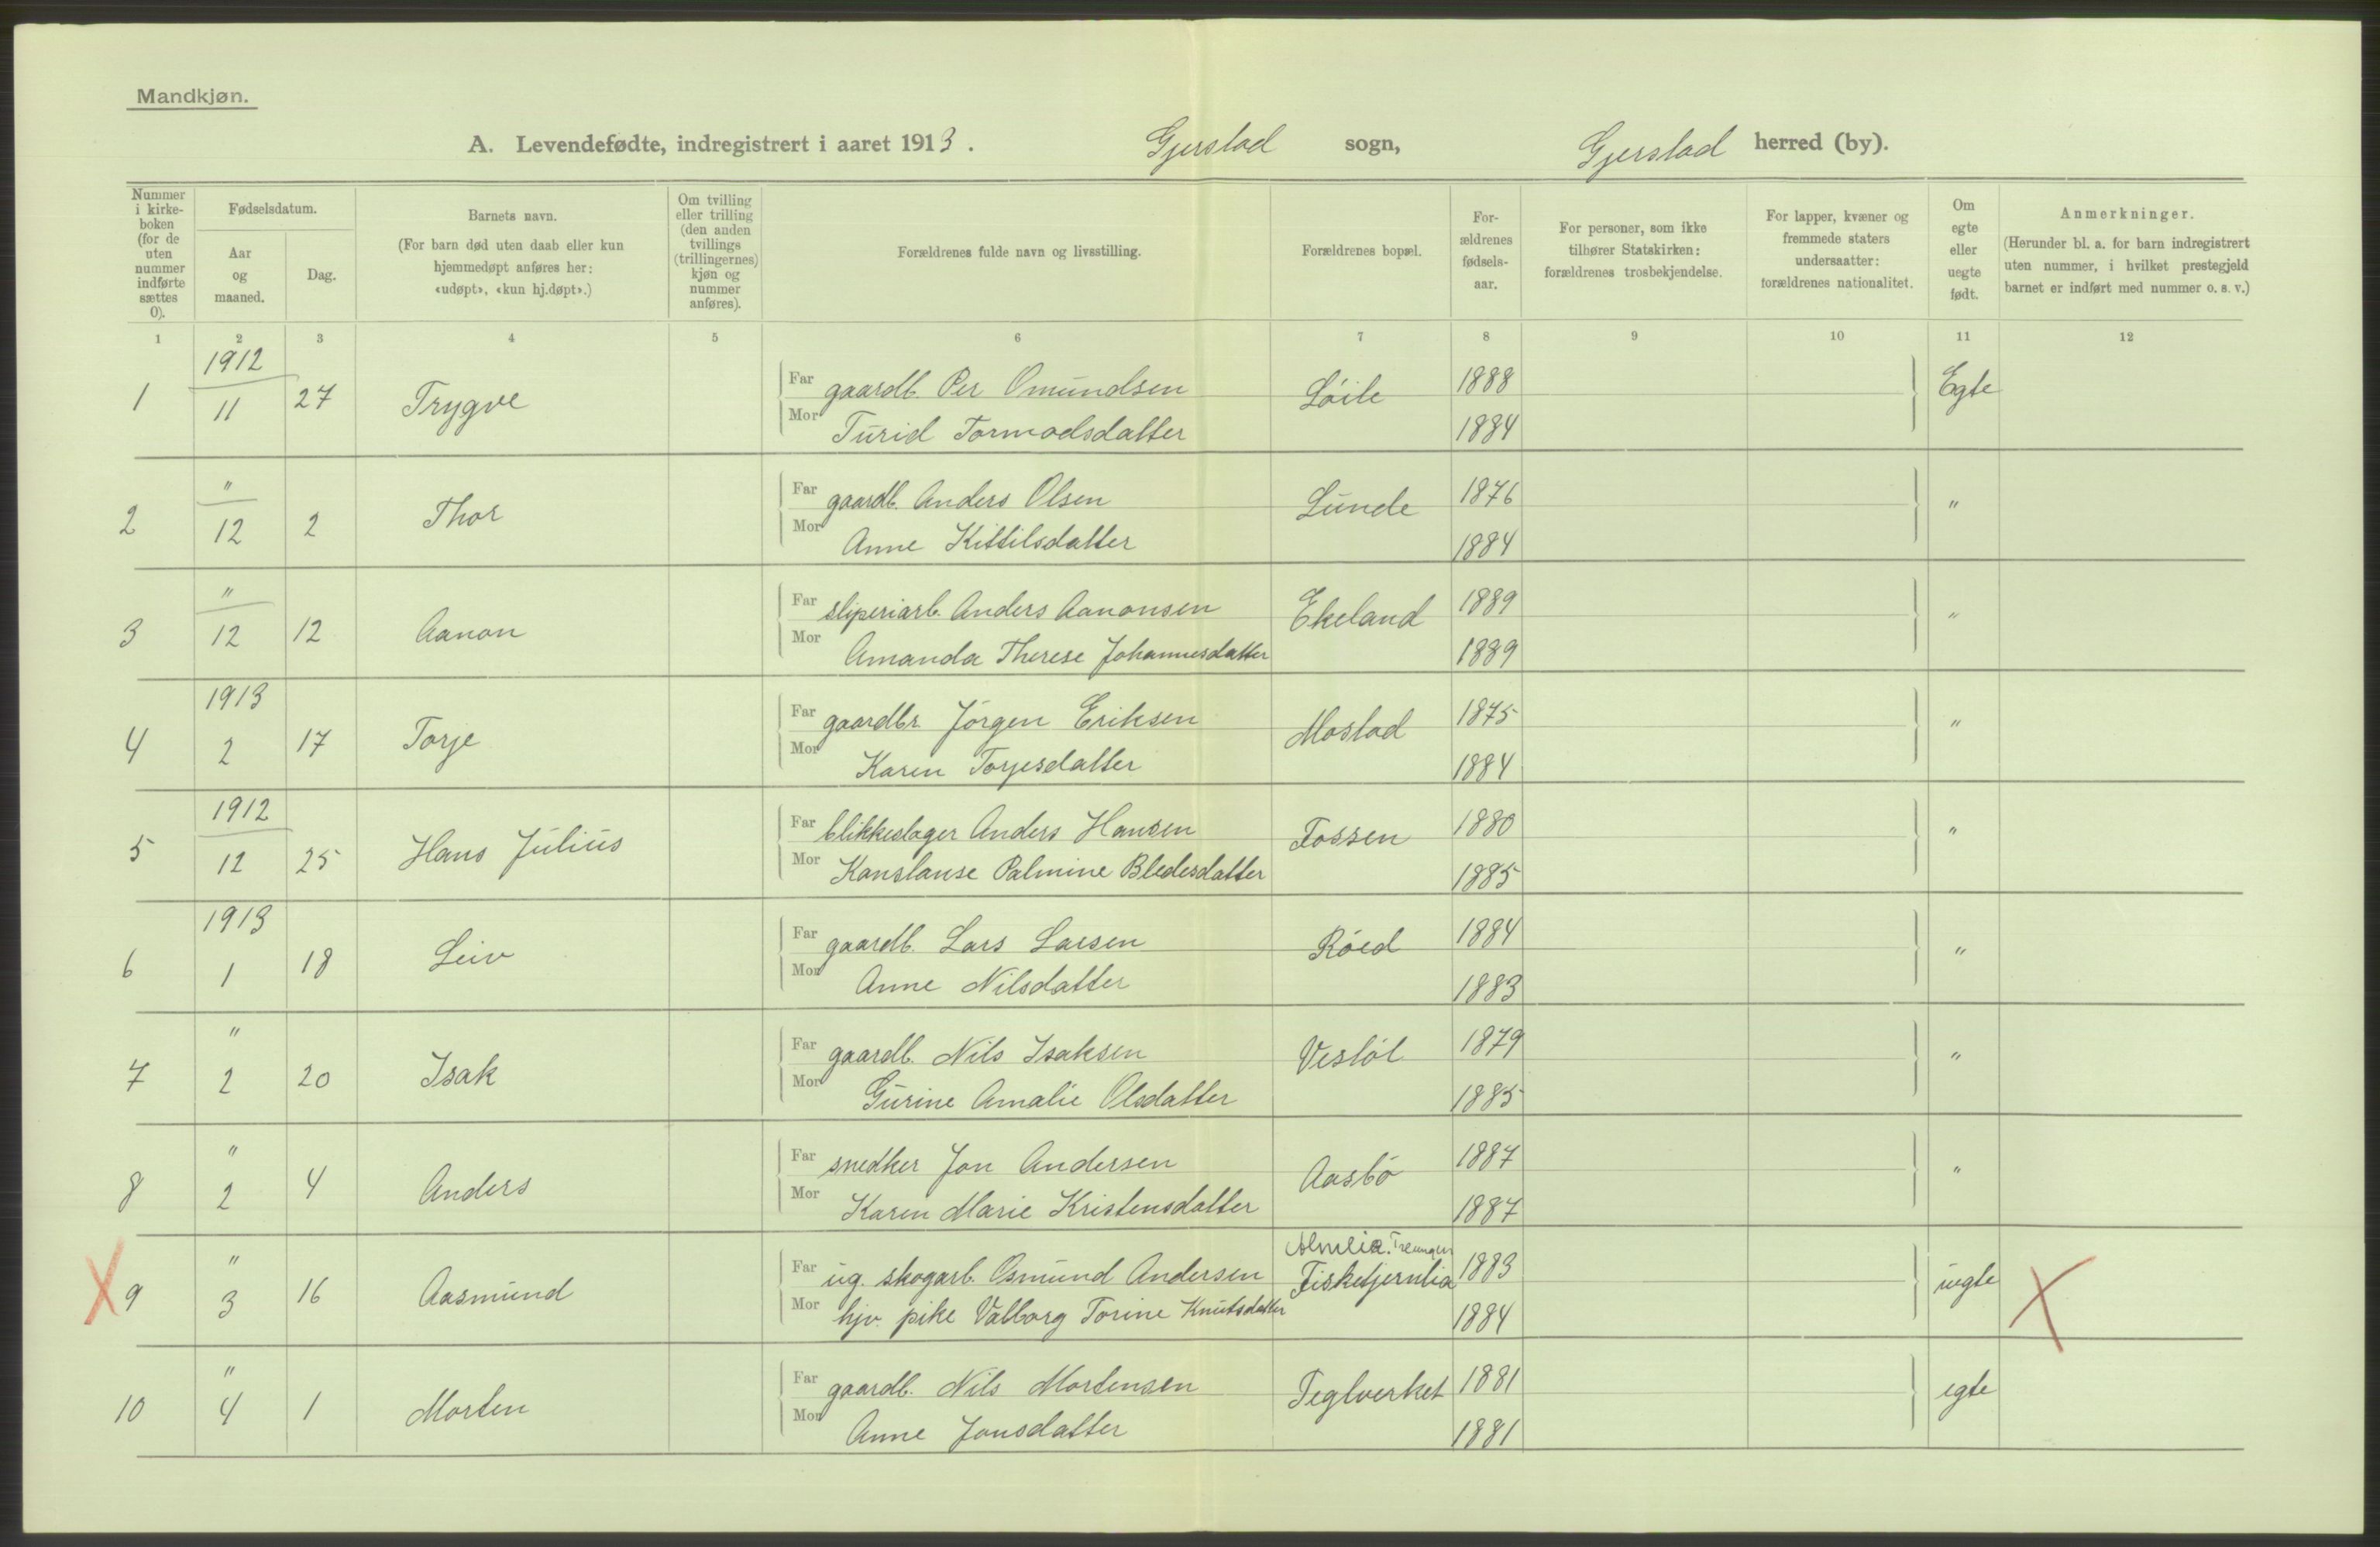 Mandkjøn.
A. Levendefødte, indregistrert i aaret 1913. Gjerstad sogn, Gjerstad herred (by).
Nummer i kirke-boken (for de uten nummer indførte sættes 0).
Fødselsdatum.
Aar og maaned.
Dag.
Barnets navn.
(For barn død uten daab eller kun hjemmedøpt anføres her: «udøpt», «kun hj.døpt».)
Om tvilling eller trilling (den anden tvillings (trillingernes) kjøn og nummer anføres).
Forældrenes fulde navn og livsstilling.
Forældrenes bopæl.
For-ældrenes fødsels-aar.
For personer, som ikke tilhører Statskirken: forældrenes trosbekjendelse.
For lapper, kvæner og fremmede staters undersaatter: forældrenes nationalitet.
Om egte eller uegte født.
Anmerkninger.
(Herunder bl. a. for barn indregistrert uten nummer, i hvilket prestegjeld barnet er indført med nummer o. s. v.)
1 2 3 4 5 6 7 8 9 10 11 12
1 1912 11 27 Trygve Far gaardb. Per Omundsen Löite 1888 Egte
Mor Turid Tormodsdatter 1884
2 " 12 2 Thor Far gaardb. Anders Olsen Lunde 1876 "
Mor Anne Kittilsdatter 1884
3 " 12 12 Aanon Far sliperiarb. Anders Aanonsen Ekeland 1889 "
Mor Amanda Therese Johannesdatter 1889
4 1913 2 17 Torje Far gaardbr. Jörgen Eriksen Mostad 1875 "
Mor Karen Torjesdatter 1884
5 1912 12 25 Hans Julius Far blikkeslager Anders Hansen Fossen 1880 "
Mor Konstanse Palmine Bledesdatter 1885
6 1913 1 18 Leiv Far gaardb. Lars Larsen Röed 1884 "
Mor Anne Nilsdatter 1883
7 " 2 20 Isak Far gaardb. Nils Isaksen Vestöl 1879 "
Mor Gurine Amalie Olsdatter 1885
8 " 2 4 Anders Far snedker Jon Andersen Aasbö 1887 "
Mor Karen Marie Kristensdatter 1887
X 9 " 3 16 Aasmund Far ug. skogarb. Osmund Andersen Treungen Fisketjernlia 1883 uegte X
Mor hjv. pike Valborg Torine Knutsdatter 1884
10 " 4 1 Morten Far gaardb. Nils Mortensen Teglverket 1881 egte
Mor Anne Jonsdatter 1881